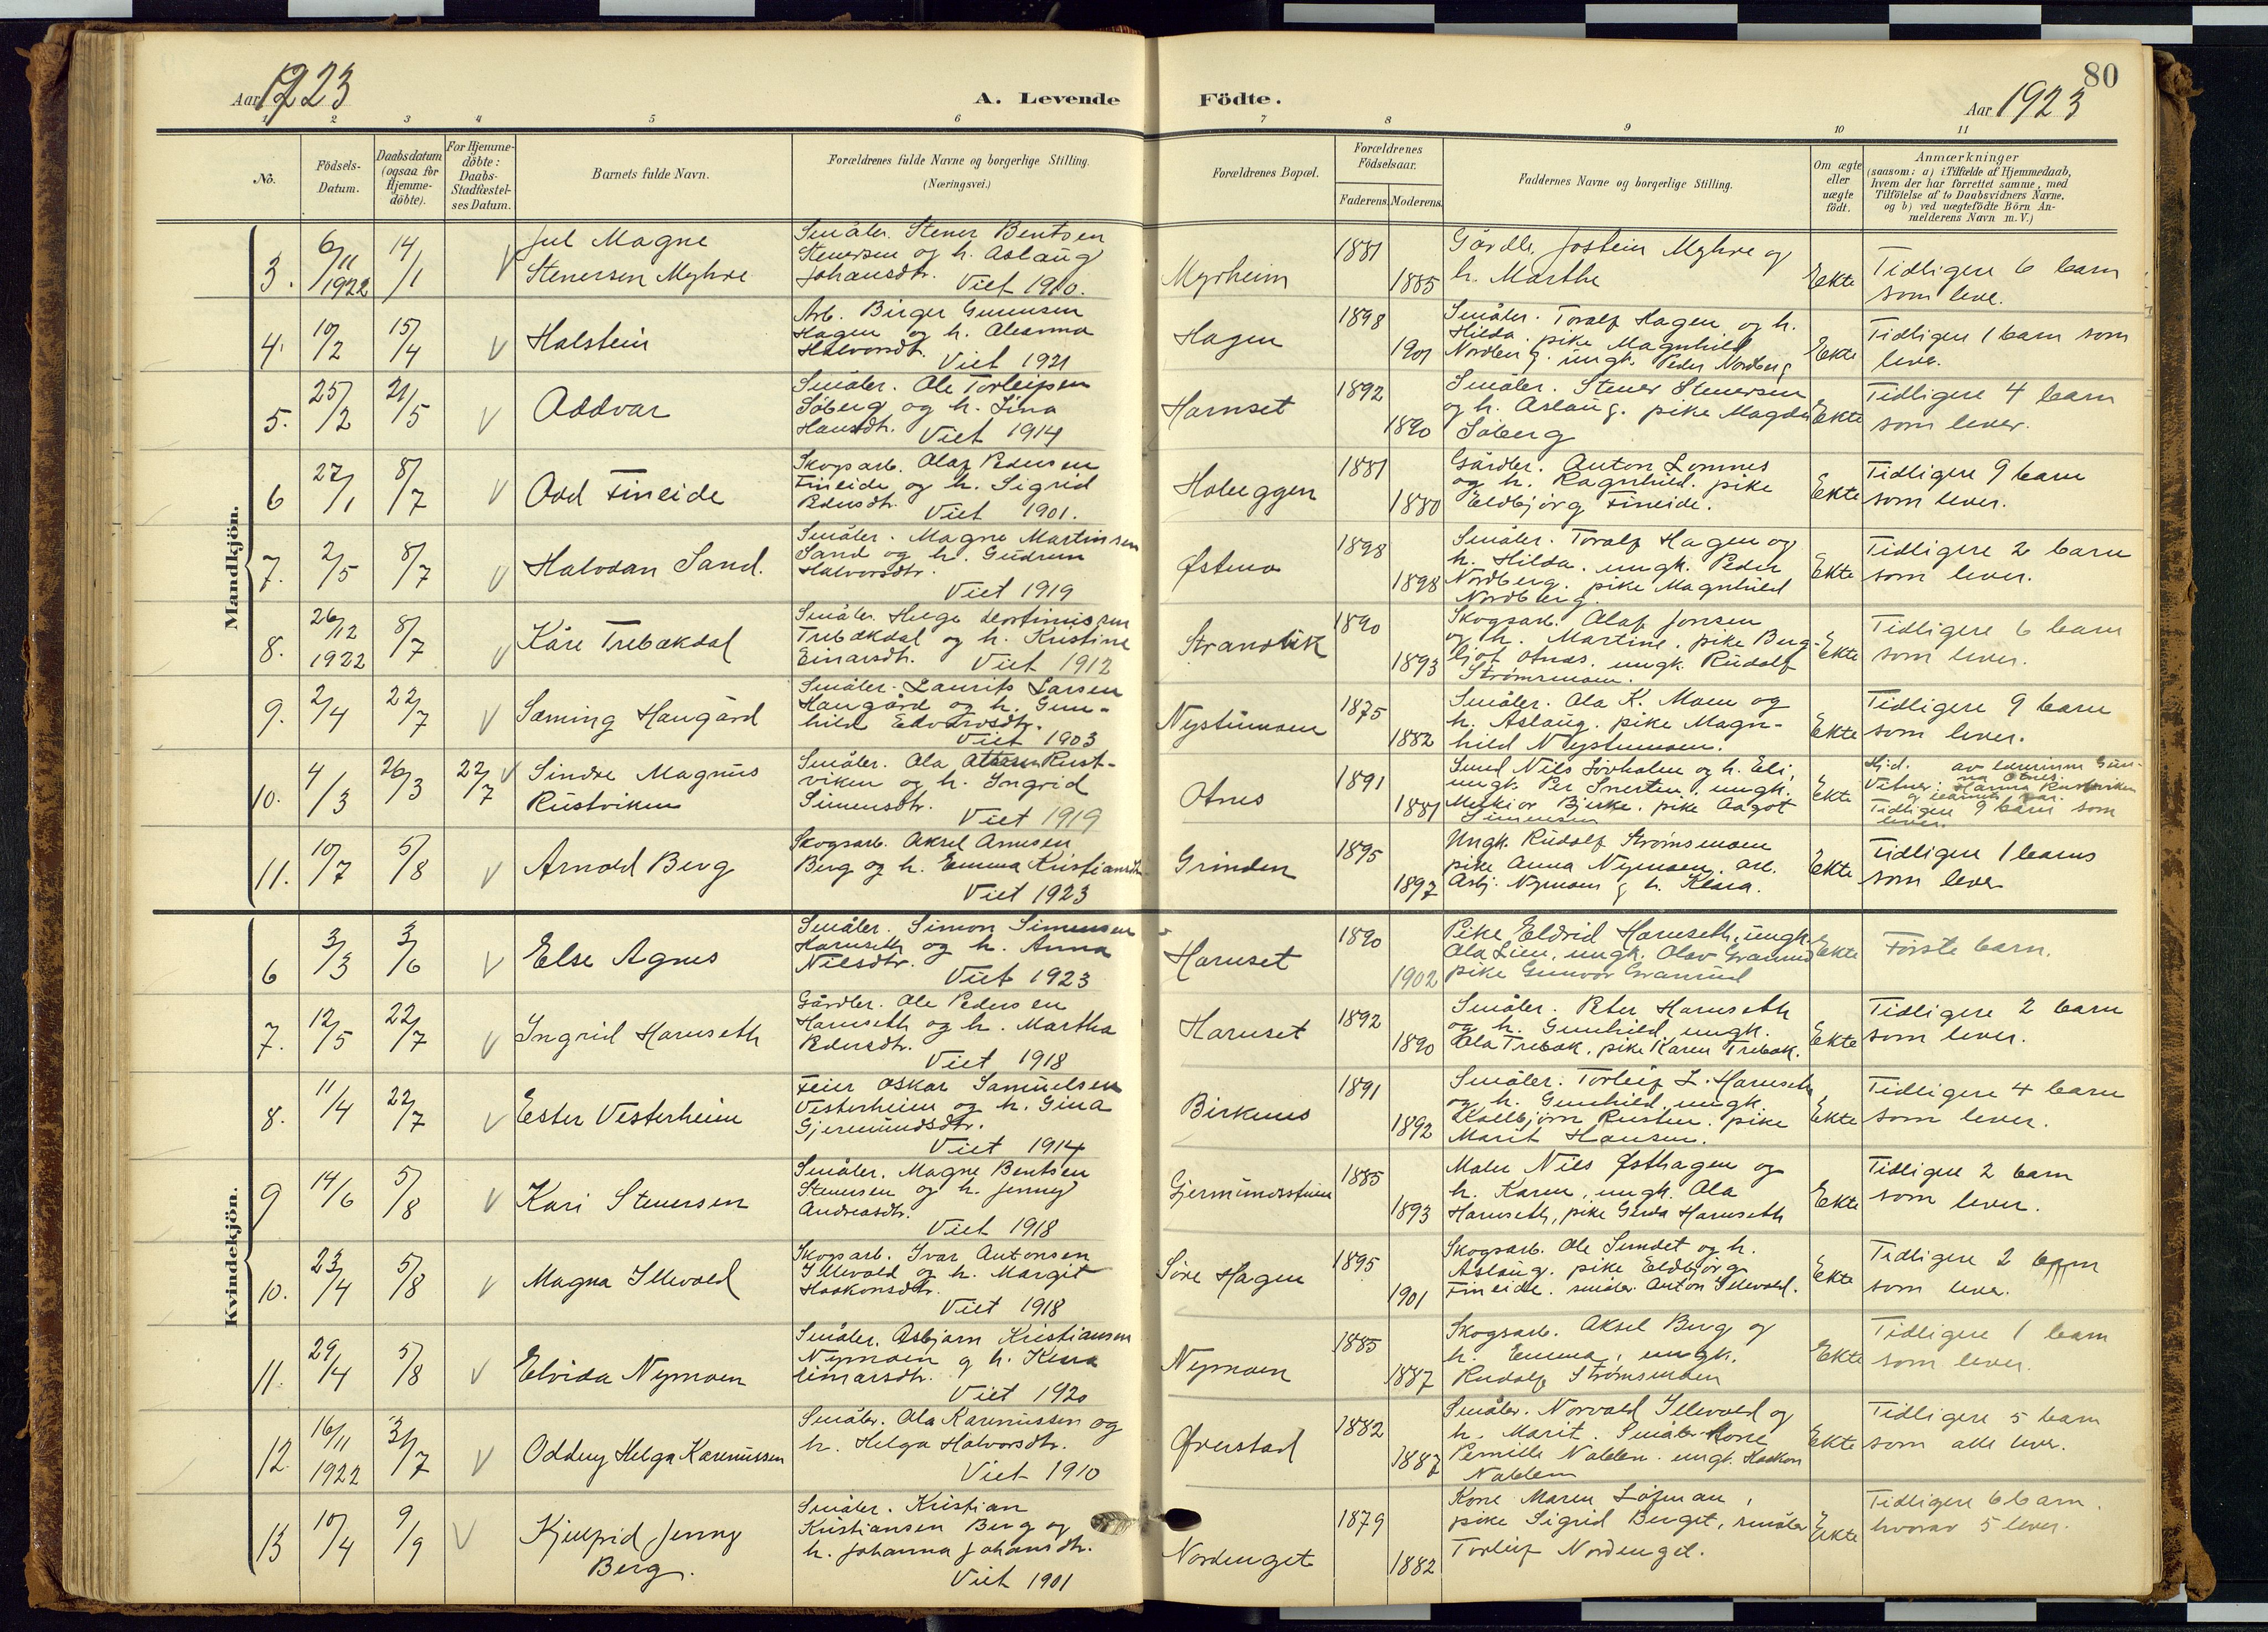 80
Aar 1923
A. Levende Födte.
Aar 1923
1 2 3 4 5 6 7 8 9 10 11
No.
Födsels-
Datum.
Daabsdatum
(ogsaa for
Hjemme-
döbte).
For Hjemme-
döbte:
Daabs-
Stadfæstel-
ses Datum.
Barnets fulde Navn.
Forældrenes fulde Navne og borgerlige Stilling.
(Næringsvei.)
Forældrenes Bopæl.
Forældrenes
Födselsaar.
Faderens. Moderens.
Faddernes Navne og borgerlige Stilling.
Om ægte
eller
uægte
födt.
Anmærkninger
(saasom: a) i Tilfælde af Hjemmedaab,
hvem der har forrettet samme, med
Tilföielse af to Daabsvidners Navne,
og b) ved uægtefödte Börn An-
melderens Navn m. V.)
Mandkjön.
3. 6/11 1922 14/1 V
Jul Magne
Stenersen Myhre
Småbr. Stener Bentsen
Stenersen og h. Aslaug
Johansdtr. Viet 1910.
Myrheim
1881
1885
Gårdbr. Jostein Myhre og
h. Marthe
Ekte
Tidligere 6 barn
som leve.
4. 10/2 15/4 V
Halstein
Arb. Birger Gunnusen
Hagen og h. Aleanna
Halvorsdt. Viet 1921
Hagen
1898
1901
Småbr. Toralf Hagen og h.
Hilda. pike Magnhild
Nordberg. ungk. Peder Nordberg
Ekte
Tidligere 1 barn som
lever.
5. 25/2 21/5 V
Oddvar
Småbr. Ole Torleifsen
Söberg og h. Lina
Hansdt. Viet 1914
Harnset
1892
1890
Småbr. Stener Stenersen
og h. Aslaug. pike Magda
Söberg
Ekte
Tidligere 4 barn
som lever.
6 27/1 8/7 V
Odd Fineide
Skogsarb. Olaf Pedersen
Fineide og h. Sigrid
Pedersdtr. Viet 1901.
Holeggen
1881
1880
Gårdbr. Anton Lomnes
og h. Ragnhild. pike
Eldbjörg Fineide.
Ekte
Tidligere 9 barn
som lever.
7. 2/5 8/7 V
Halvdan Sand.
Småbr. Magne Martinsen
Sand og h. Gudrun
Halvorsdtr.
Viet 1919
Østmo
1898
1898
Småbr. Toralf Hagen og
h. Hilda. ungk. Peder
Nordberg. pike Magnhild
Nordberg.
Ekte
Tidligere 2 barn
som lever.
8. 26/12 1922 8/7 V
Kåre Trebakdal
Småbr. Helge
Trebakdal og h. Kristine
Einarsdtr. Viet 1912
Strandvik
1890
1893
Skogsarb. Olaf Jonsen
og h. Martine. pike Berg-
ljot Otnes. ungk. Rudolf
Strømsmoen.
Ekte
Tidligere 6 barn
som lever.
9. 2/4 22/7 V
Sæming Haugård
Småbr. Laurits Larsen
Haugård og h. Gun-
hild Edvardsdtr.
Viet 1903
Nystumoen
1875
1882
Småbr. Ola K. Moen og
h. Aslaug. pike Magn-
hild Nystumoen.
Ekte
Tidligere 9 barn
som lever.
10. 4/3 26/3 22/7 V
Sindre Magnus
Rustviken
Småbr. Ola Rust-
viken og h. Ingrid
Simensdtr.
Viet 1919
Otnes
1891
1881
Smed Nils Lövholm og h. Eli,
ungk. Per Snerten, ungk.
Melkior Bjerke. pike Aagot
Simensen
Ekte
Hjd. av lærerinne Gun-
na Otnes.
Vitner: Hanna Rustviken
og barnets far.
Tidligere 9 barn som
lever.
11. 10/7 5/8 V
Arnold Berg
Skogsarb. Aksel Arnesen
Berg og h. Emma Kristiansdtr.
Viet 1923
Grinden
1895
1897
Ungk. Rudolf Strømsmoen
pike Anna Nymoen, arb.
Asbj. Nymoen g h. Klara.
Ekte
Tidligere 1 barns
som lever
Kvindekjön.
6 3/3 3/6 V
Else Agnes
Småbr. Simon Simensen
Harnseth og h. Anna
Nilsdtr.
Viet 1923
Harnset
1890
1902
Pike Eldrid Harnseth, ungk.
Ola Lien, ungk. Olav Granrud
pike Gunvor Granrud
Ekte
Første barn.
7. 12/5 22/7 V
Ingrid Harnseth
Gårdbr. Ole Pedersen
Harnseth og h. Martha
Pedersdtr.
Viet 1918
Harnset
1892
1890
Småbr. Peter Harnseth
og h. Gunhild, ungk.
Ola Trebak. pike Karen Trebak.
Ekte
Tidligere 2 barn
som lever.
8. 11/4 22/7 V
Ester Vesterheim
Feier Oskar Samuelsen
Vesterheim og h. Gina
Gjermundsdtr.
Viet 1914
Birkmo
1891
1892
Småbr. Torleif L. Harnseth
og h. Gunhild, ungk.
Kolbjörn Rusten. pike
Marit Hansen.
Ekte
Tidligere 4 barn
som lever.
9 14/6 5/8 V
Kari Stenersen
Småbr. Magne Bentsen
Stenersen og h. Jenny
Andreasdtr.
Viet 1918
Gjermundsstuen
1885
1893
Maler Nils Østhagen og
h. Karen, ungk. Ola
Harnseth, pike Gerda Harnseth
Ekte
Tidligere 2 barn
som lever.
10. 23/4 5/8 V
Magna Illevold
Skogsarb. Ivar Antonsen
Illevold og h. Margit
Haakonsdtr.
Viet 1918
Söre Hagen
1895
1901
Skogsarb. Ole Sundet og h.
Aslaug. pike Eldbjörg
Fineide. småbr. Anton Illevold.
Ekte
Tidligere 2 barn
som lever.
11. 29/4 5/8 V
Elvida Nymoen
Småbr. Asbjørn Kristiansen
Nymoen g h. Klara
Einarsdtr.
Viet 1920
Nymoen
1885
1887
Skogsarb. Aksel Berg og
h. Emma, ungk.
Rudolf Strømsmoen
Ekte
Tidligere 1 barn
som lever.
12. 16/11 1922 31/7 V
Oddny Helga Karenussen
Småbr. Ola Karenussen og
h. Helga Halvorsdtr.
Viet 1910
Øverstad
1882
1887
Småbr. Norvald Illevold og
h. Marit. Småbr. Kone
Pernille Nabben. ungk. Haakon
Nabben
Ekte
Tidligere 5 barn
som alle lever.
13 10/4 9/9 V
Kjellfrid Jenny
Berg.
Småbr. Kristian
Kristiansen Berg og
h. Johanna Johansdtr.
Viet 1901
Nordenget
1879
1882
Kone Maren Löfman,
pike Sigrid Berget, småbr
Torleif Nordenget.
Ekte
Tidligere 6 barn.
hvorav 5 lever.